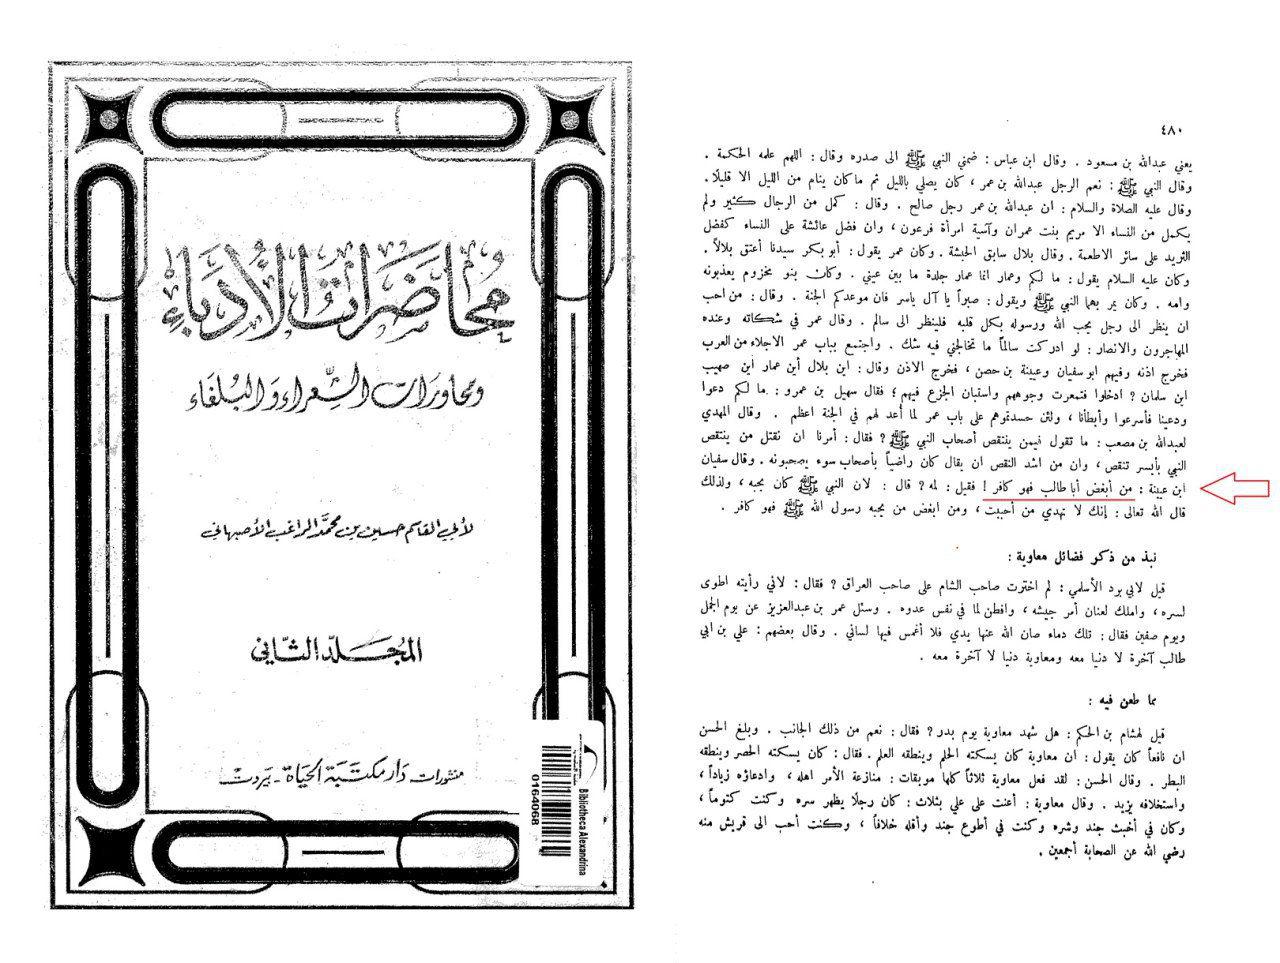 محاضرات الأدباء
ومحاورات الشعراء والبلغاء
لأبي القاسم حسين بن محمد الراغب الأصبهاني
المجلد الثاني
منشورات دار مكتبة الحياة - بيروت
Bibliotheca Alexandrina
0164068
٤٨٠
يعني عبدالله بن مسعود . وقال ابن عباس : ضمني النبي ﷺ الى صدره وقال : اللهم علمه الحكمة .
وقال النبي ﷺ : نعم الرجل عبدالله بن عمر ، كان يصلي بالليل ثم ما كان ينام من الليل الا قليلًا .
وقال عليه الصلاة والسلام : ان عبدالله بن عمر رجل صالح . وقال : كمل من الرجال كثير ولم
يكمل من النساء الا مريم بنت عمران وآسية امرأة فرعون ، وان فضل عائشة على النساء كفضل
الثريد على سائر الاطعمة . وقال بلال سابق الحبشة . وكان عمر يقول : أبو بكر سيدنا أعتق بلالاً .
وكان عليه السلام يقول : ما لكم وعمار انما عمار جلدة ما بين عيني . وكان بنو مخزوم يعذبونه
وامه . وكان يمر بهما النبي ﷺ ويقول : صبراً يا آل ياسر فان موعدكم الجنة . وقال : من احب
ان ينظر الى رجل يحب الله ورسوله بكل قلبه فلينظر الى سالم . وقال عمر في شكاته وعنده
المهاجرون والانصار : لو ادركت سالماً ما تخالجني فيه شك . واجتمع بباب عمر الاجلاء من العرب
فخرج اذنه وفيهم ابو سفيان وعيينة بن حصن ، فخرج الاذن وقال : ابن بلال أبن عمار ابن صهيب
ابن سلمان ? ادخلوا فتمعرت وجوههم واستبان الجزع فيهم ; فقال سهيل بن عمرو : ما لكم دعوا
ودعينا فأسرعوا وأبطأنا ، ولئن حسدتموهم على باب عمر لما أعد لهم في الجنة اعظم . وقال المهدي
لعبدالله بن مصعب : ما تقول فيمن ينتقص أصحاب النبي ﷺ ? فقال : أمرنا ان نقتل من ينتقص
النبي بأيسر تنقص ، وان من اشد النقص ان يقال كان راضياً بأصحاب سوء يصحبونه . وقال سفيان
ابن عيينة : من أبغض أبا طالب فهو كافر ! فقيل : لمه ? قال : لان النبي ﷺ كان يحبه ، ولذلك
قال الله تعالى : إنك لا تهدي من أحببت ، ومن ابغض من يحبه رسول الله ﷺ فهو كافر .
نبذ من ذكر فضائل معاوية :
قيل لابي برد الأسلمي : لم اخترت صاحب الشام على صاحب العراق ? فقال : لاني رأيته اطوى
لسره ، واملك لعنان أمر جيشه ، وافطن لما في نفس عدوه . وسئل عمر بن عبدالعزيز عن يوم الجمل
ويوم صفين فقال : تلك دماء صان الله عنها يدي فلا أغمس فيها لساني . وقال بعضهم : علي بن ابي
طالب آخرة لا دنيا معه ومعاوية دنيا لا آخرة معه .
مما طعن فيه :
قيل لهشام بن الحكم : هل شهد معاوية يوم بدر ? فقال : نعم من ذلك الجانب . وبلغ الحسن
ان نافعاً كان يقول : ان معاوية كان يسكته الحلم وينطقه العلم . فقال : كان يسكته الحصر وينطقه
البطر . وقال الحسن : لقد فعل معاوية ثلاثاً كلها موبقات : منازعة الأمر اهله ، وادعاؤه زياداً ،
واستخلافه يزيد . وقال معاوية : أعنت على علي بثلاث : كان رجلًا يظهر سره وكنت كتوماً ،
وكان في أخبث جند وشره وكنت في أطوع جند وأقله خلافاً ، وكنت أحب الى قريش منه
رضي الله عن الصحابة أجمعين .